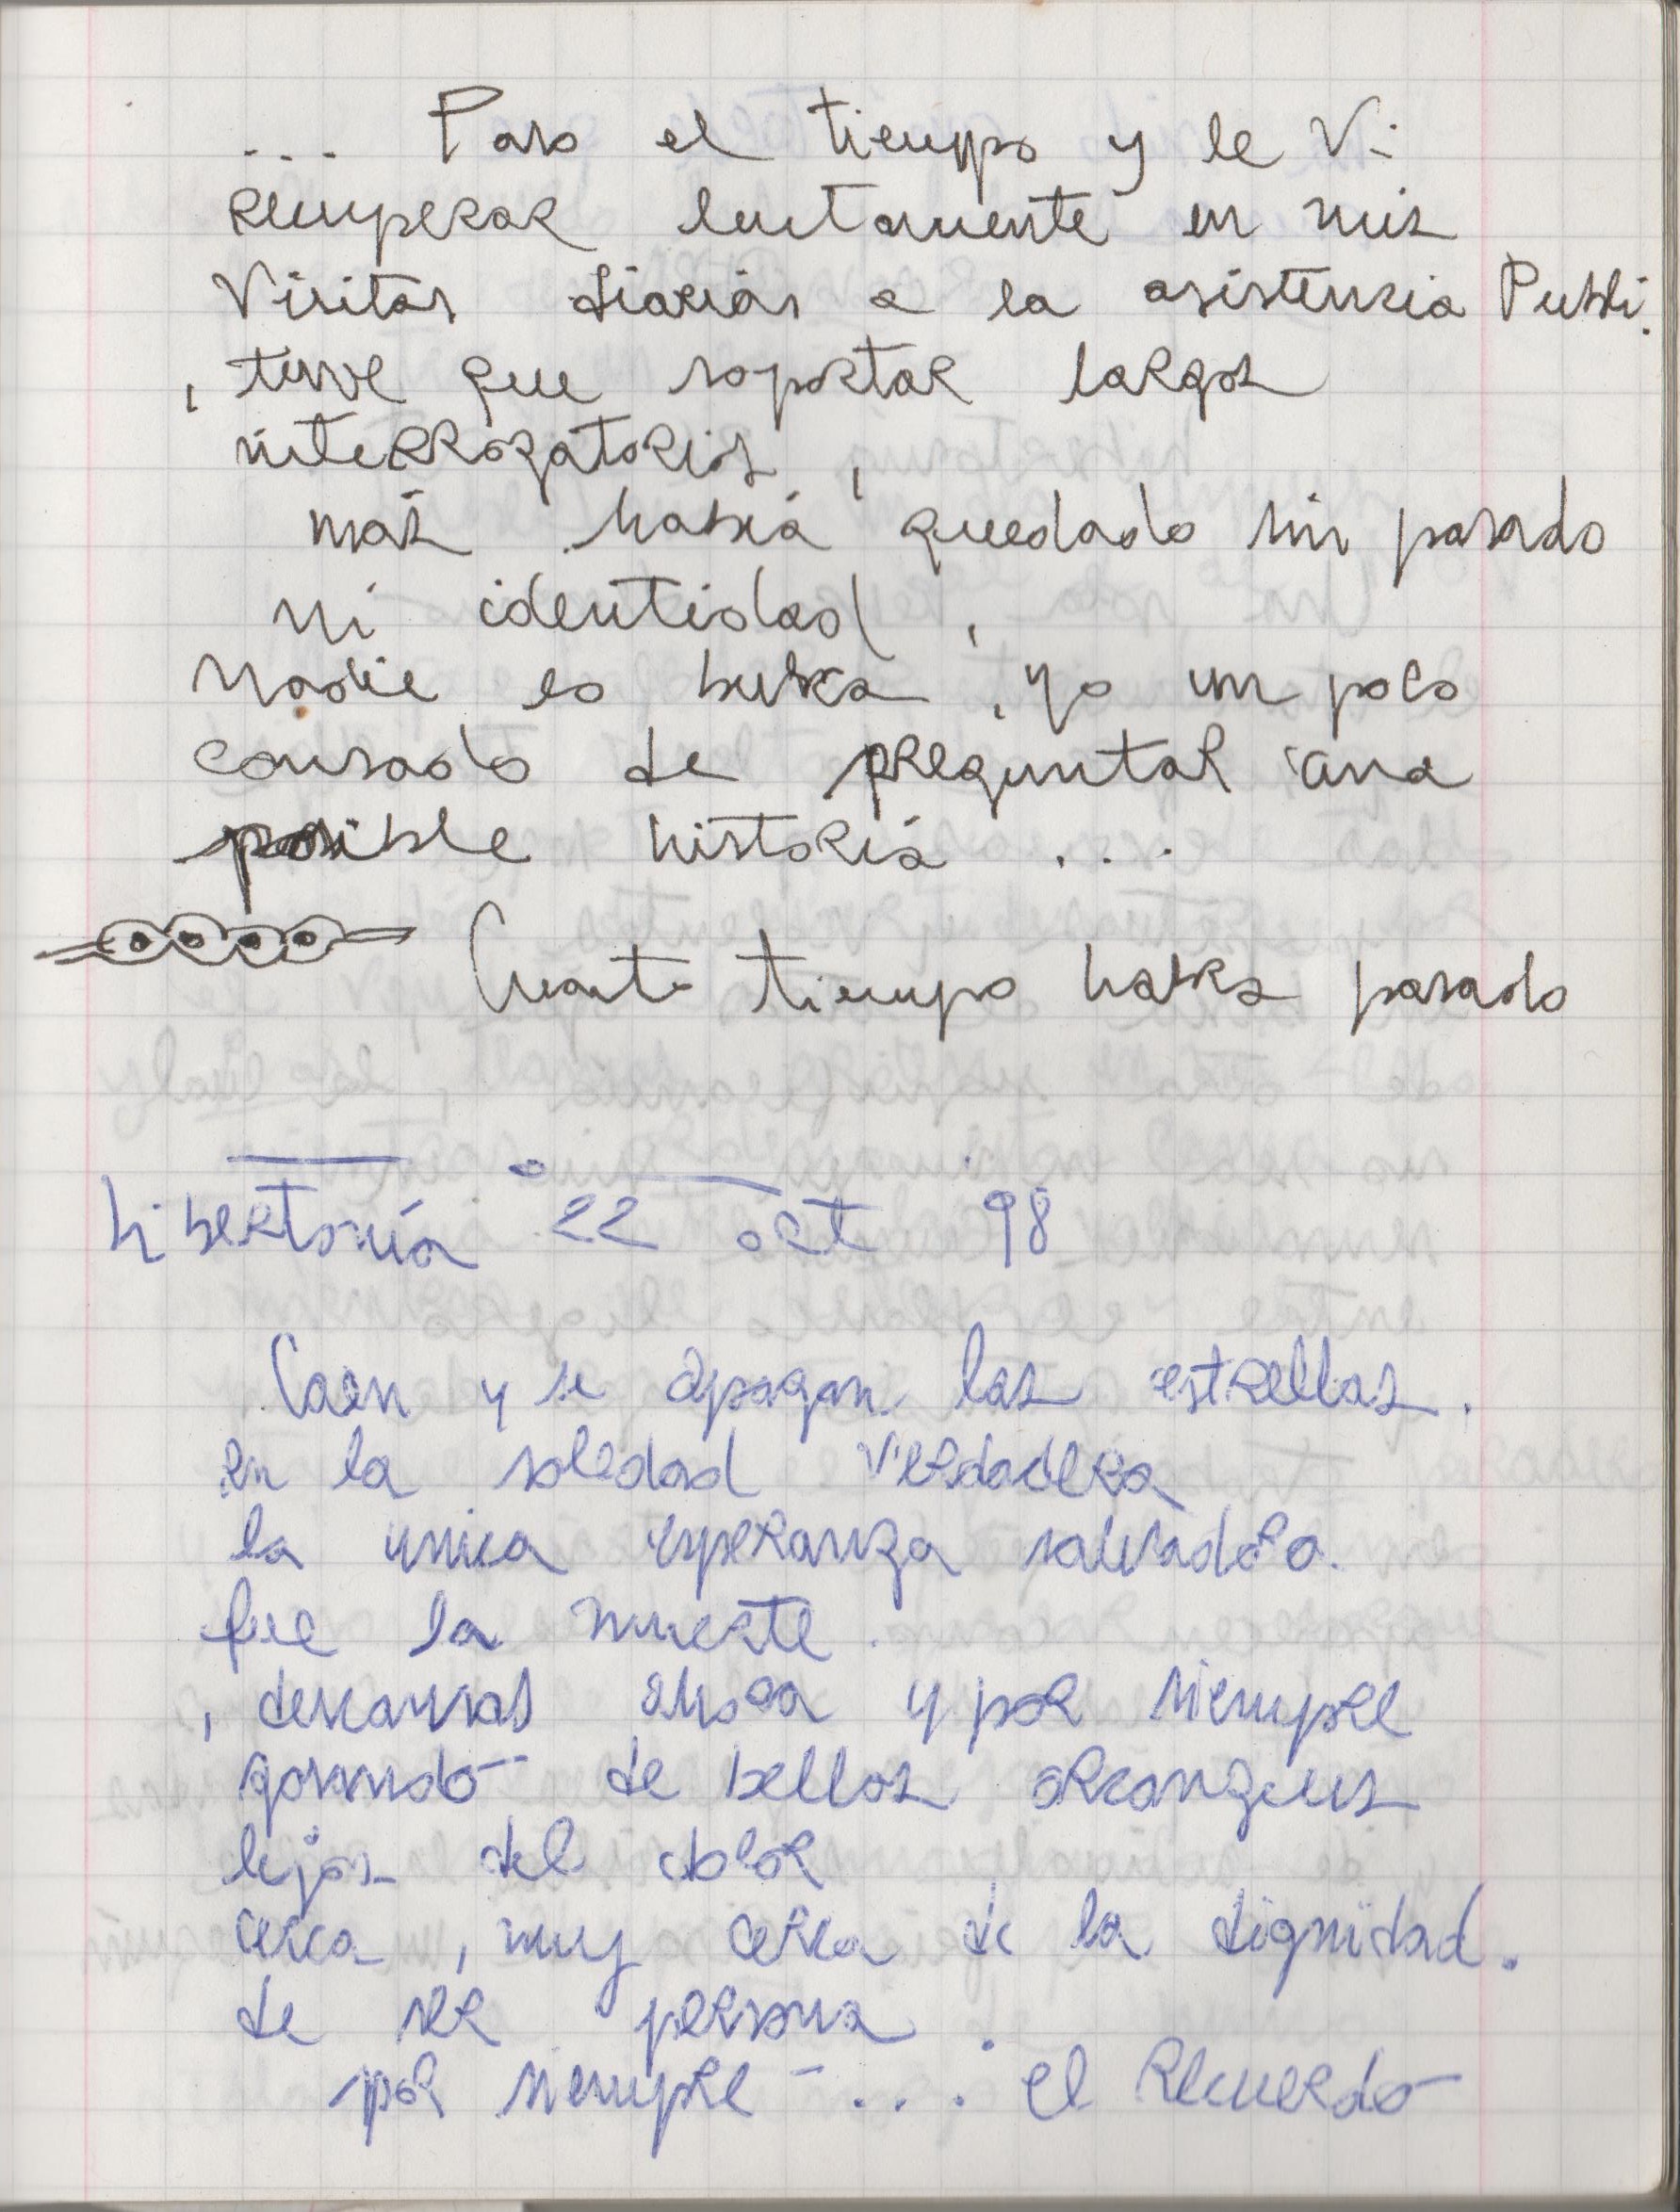 ... Paso el tiempo y le Vi
recuperar lentamente en mis
Visitas diarias a la asistencia Publi.
, tuve que soportar largos
interrogatorios ,
mas habia quedado sin pasado
ni identidad ,
Nadie lo busca , yo un poco
cansado de preguntar
posible historia ...
Cuanto tiempo habra pasado
Libertonia 22 oct 98
Caen y se apagan las estrellas.
en la soledad verdadera
la unica esperanza salvadora.
fue la muerte.
, descansas ahora y por siempre
gosando de bellos
lejos del dolor
cerca , muy cerca de la dignidad.
de ser persona .
por siempre ... el recuerdo